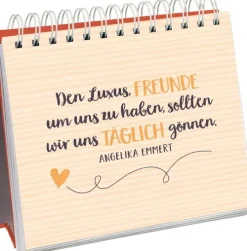 Den Luxus, FREUNDE
um uns zu haben, sollten
wir uns TÄGLICH gönnen.
ANGELIKA EMMERT